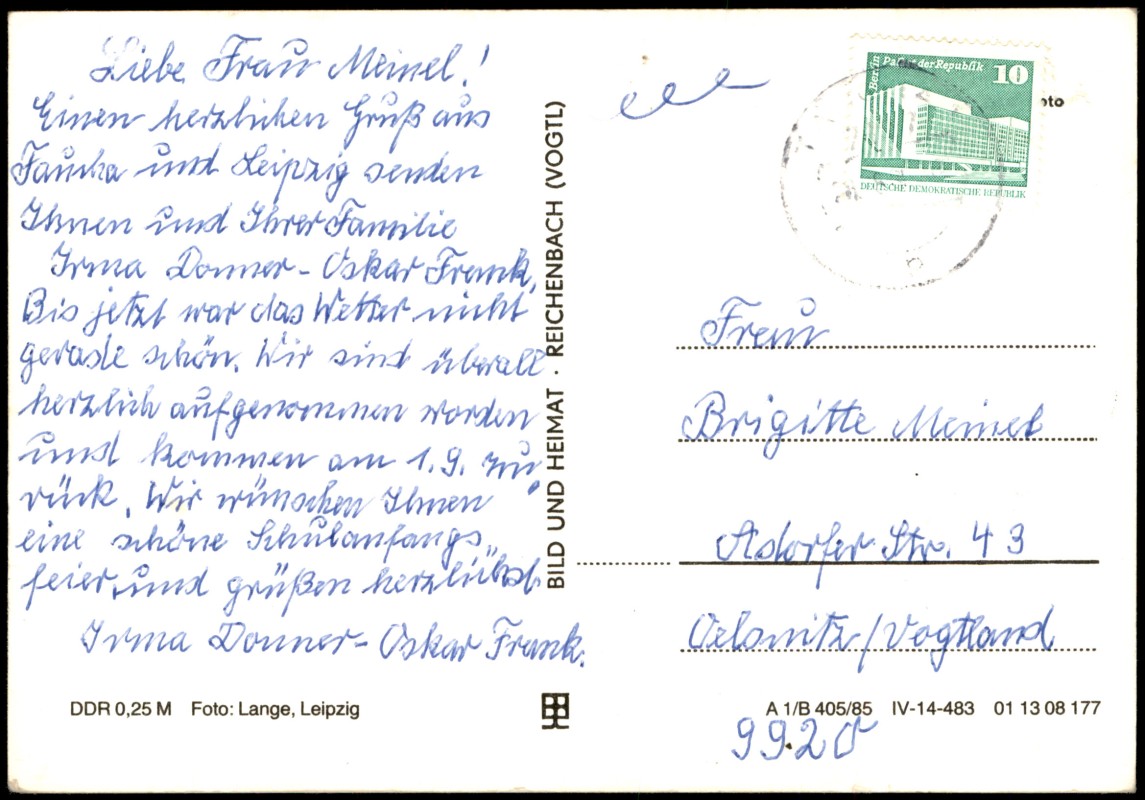 Liebe Frau Meinel!
Einen herzlichen Gruß aus
Taucha und Leipzig senden
Ihnen und Ihrer Familie
Irma Donner - Oskar Frank.
Bis jetzt war das Wetter nicht
gerade schön. Wir sind überall
herzlich aufgenommen worden
und kommen am 1.9. zu,
rück. Wir wünschen Ihnen
eine schöne Schulanfangs„
feier und grüßen herzlichst.
Irma Donner - Oskar Frank.
DDR 0,25 M Foto: Lange, Leipzig
BILD UND HEIMAT · REICHENBACH (VOGTL)
Berlin
Palast der Republik
10
DEUTSCHE DEMOKRATISCHE REPUBLIK
oto
Frau
Brigitte Meinel
Adorfer Str. 43
Oelsnitz/Vogtland
A 1/B 405/85 IV-14-483 01 13 08 177
9920